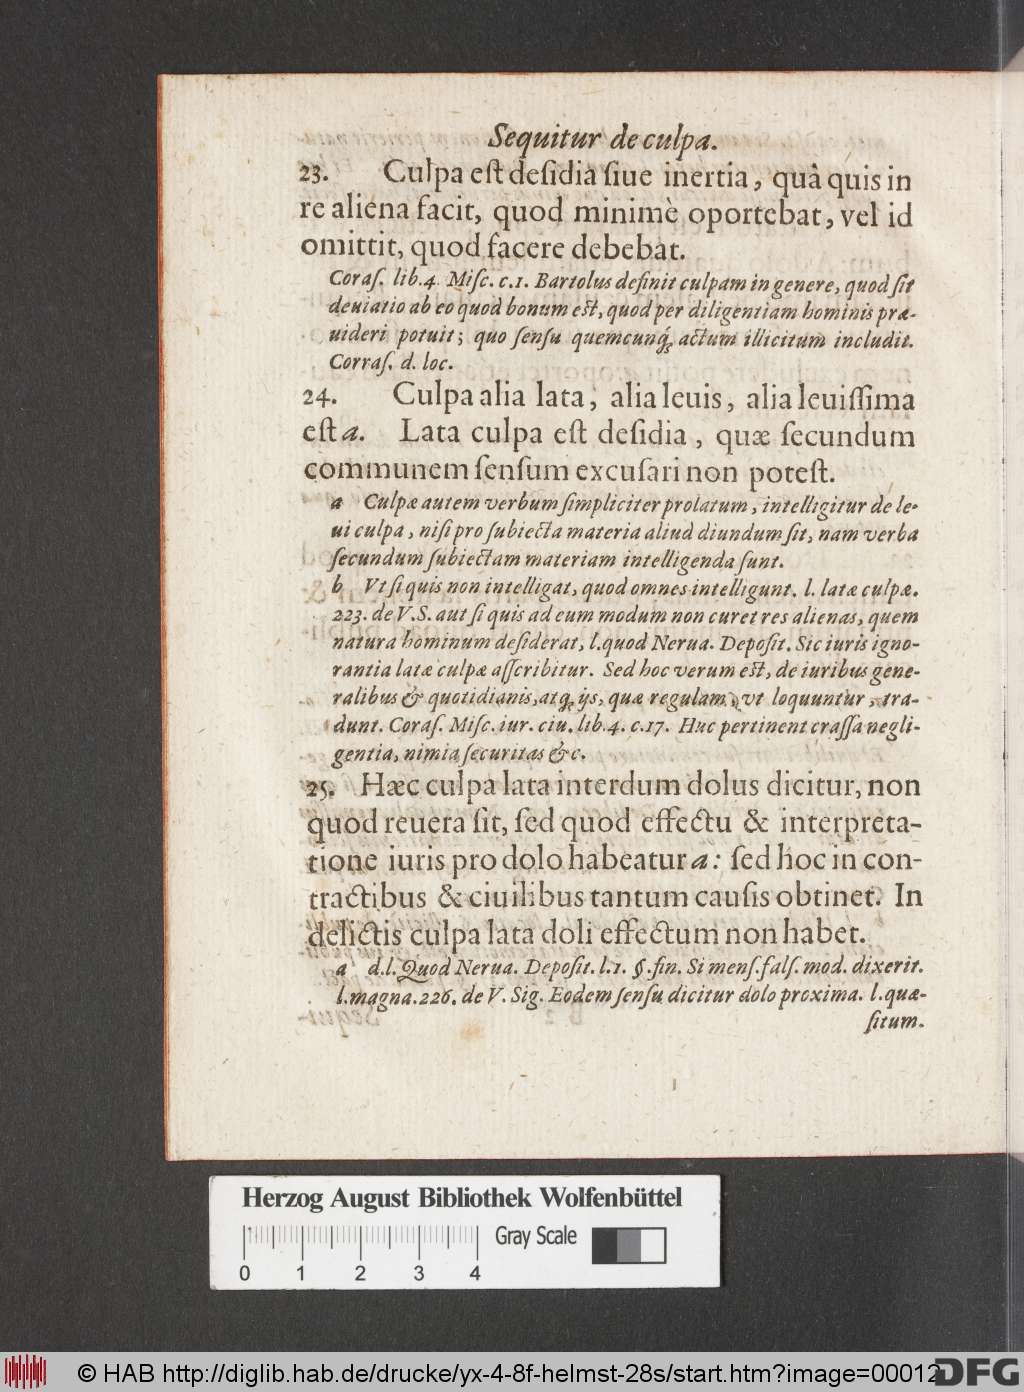 Sequitur de culpa.
23. Culpa est desidia siue inertia, quâ quis in
re aliena facit, quod minimè oportebat, vel id
omittit, quod facere debebat.
Coras. lib.4. Misc. c.1. Bartolus definit culpam in genere, quod sit
deuiatio ab eo quod bonum est, quod per diligentiam hominis præ-
uideri potuit; quo sensu quemcunq́; actum illicitum includit.
Corras. d. loc.
24. Culpa alia lata, alia leuis, alia leuissima
est a. Lata culpa est desidia, quæ secundum
communem sensum excusari non potest.
a Culpæ autem verbum simpliciter prolatum, intelligitur de le-
ui culpa, nisi pro subiecta materia aliud diundum sit, nam verba
secundum subiectam materiam intelligenda sunt.
b Vt si quis non intelligat, quod omnes intelligunt. l. latæ culpæ.
223. de V.S. aut si quis ad eum modum non curet res alienas, quem
natura hominum desiderat, l.quod Nerua. Deposit. Sic iuris igno-
rantia latæ culpæ asscribitur. Sed hoc verum est, de iuribus gene-
ralibus & quotidianis, atq; ijs, quæ regulam, vt loquuntur, tra-
dunt. Coras. Misc. iur. ciu. lib.4. c.17. Huc pertinent crassa negli-
gentia, nimia securitas &c.
25. Hæc culpa lata interdum dolus dicitur, non
quod reuera sit, sed quod effectu & interpreta-
tione iuris pro dolo habeatur a: sed hoc in con-
tractibus & ciuilibus tantum causis obtinet. In
delictis culpa lata doli effectum non habet.
a d.l. Quod Nerua. Deposit. l.1. §. fin. Si mens. fals. mod. dixerit.
l.magna.226. de V. Sig. Eodem sensu dicitur dolo proxima. l.quæ-
situm.
Herzog August Bibliothek Wolfenbüttel
Gray Scale
0 1 2 3 4
© HAB http://diglib.hab.de/drucke/yx-4-8f-helmst-28s/start.htm?image=00012
DFG